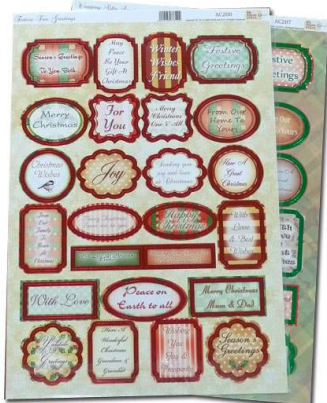 Festive Fun Greetings
AC2107
AC2107
Season's Greetings
To You Both
May
Peace
Be Your
Gift At
Christmas
Winter
Wishes
Friend
Festive
Greetings
Merry
Christmas
For
You
Merry
Christmas
One & All
From Our
Home To
Yours
Christmas
Wishes
Joy
Sending you
joy and love
at Christmas
Have A
Great
Christmas
From
Our
Family
To
Yours
At
Christmas
Happy
Greetings
With
Love
& Best
Wishes
With Love
Peace on
Earth to all
Merry Christmas
Mum & Dad
Yuletide
Greetings
Have A
Wonderful
Christmas
Grandma &
Grandad
Wishing
You
Joy &
Prosperity
Season's
Greetings